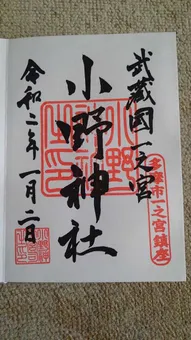 武蔵國一之宮
多摩市一之宮鎮座
小野神社
令和二年一月二日